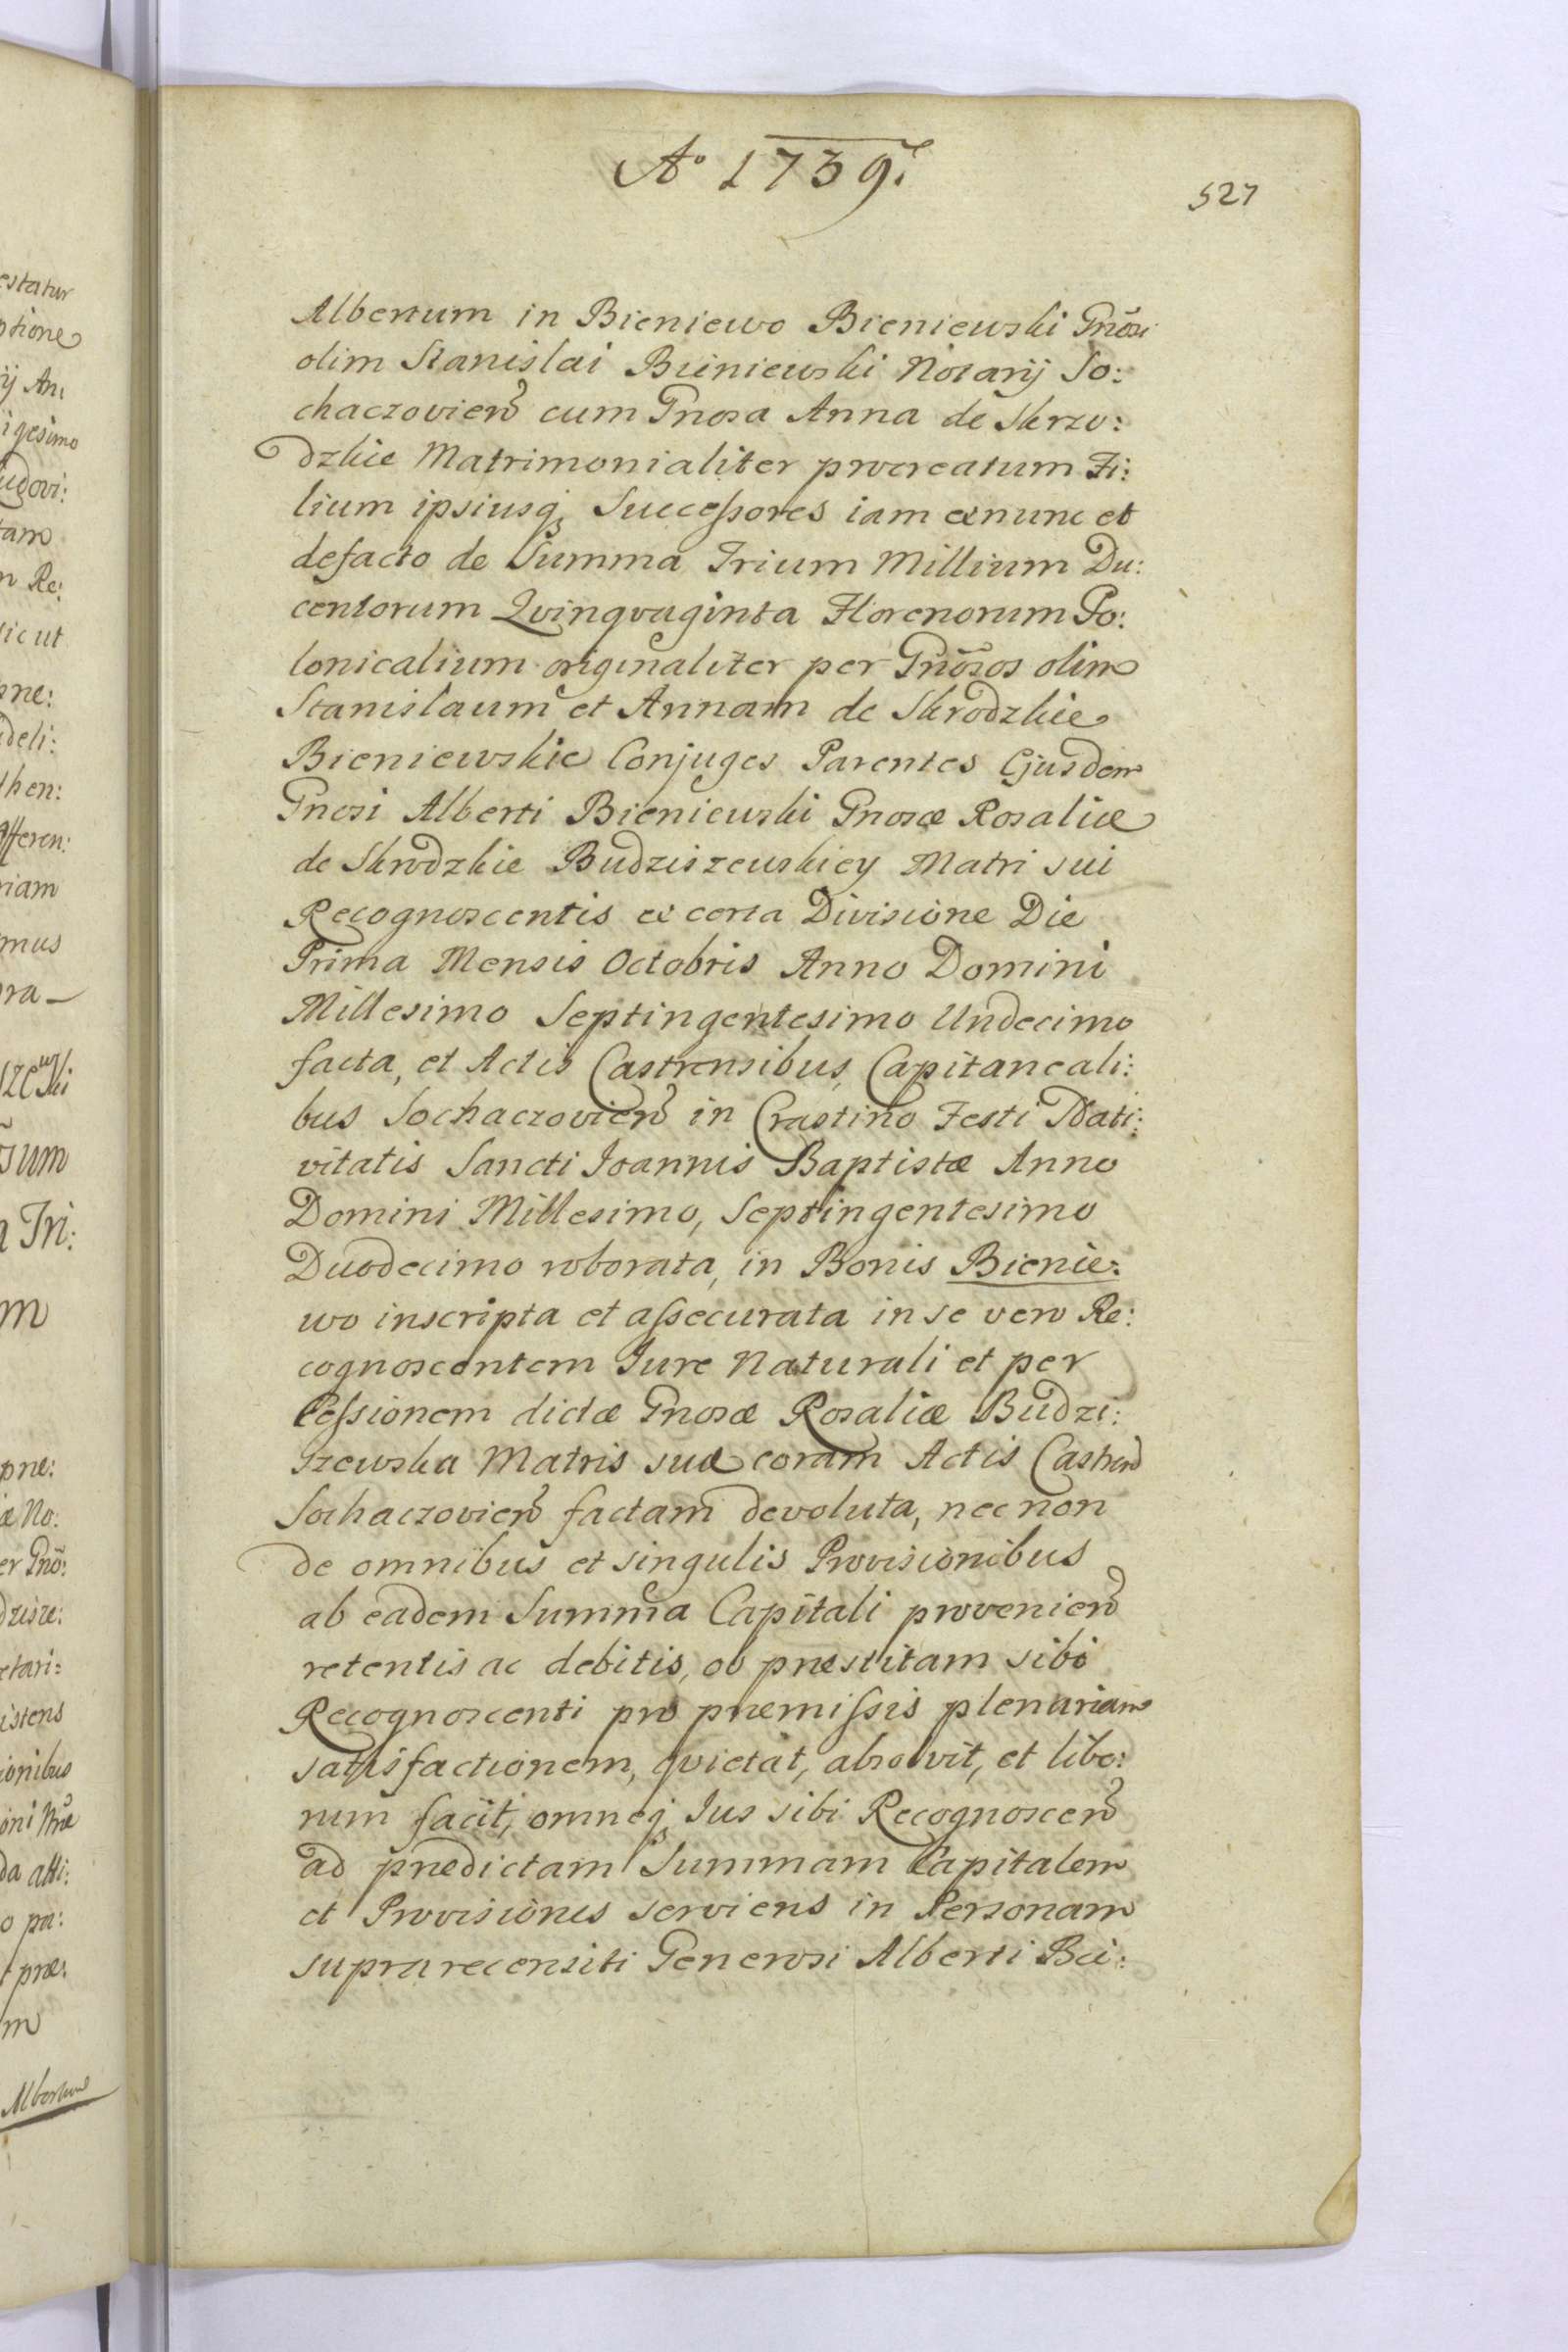 Aº 1739.
527
Albertum in Bieniewo Bieniewski Gnosi
olim Stanislai Bieniewski Notarij So:
chaczovien cum Gnosa Anna de Skrzo:
dzkie Matrimonialiter procreatum Fi:
lium ipsiusq Successores iam exnunc et
defacto de Summa Trium Millium Du:
centorum Qvinqvaginta Florenorum Po:
lonicalium originaliter per Gnosos olim
Stanislaum et Annam de Skrodzkie
Bieniewskie Conjuges Parentes Ejusdem
Gnosi Alberti Bieniewski Gnosæ Rosaliæ
de Skrodzkie Budziszewskiey Matri sui
Recognoscentis ex certa Divisione Die
Prima Mensis Octobris Anno Domini
Millesimo Septingentesimo Undecimo
facta, et Actis Castrensibus Capitaneali:
bus Sochaczovien in Crastino Festi Nati:
vitatis Sancti Joannis Baptistæ Anno
Domini Millesimo, Septingentesimo
Duodecimo roborata, in Bonis Bienie:
wo inscripta et assecurata in se vero Re:
cognoscentem Jure Naturali et per
Cessionem dictæ Gnosæ Rosaliæ Budzi:
szewska Matris suæ coram Actis Castren
Sochaczovien factam devoluta, nec non
de omnibus et singulis Provisionibus
ab eadem Summa Capitali provenien
retentis ac debitis, ob præstitam sibi
Recognoscenti pro præmissis plenariam
satisfactionem, qvietat, absolvit, et libe:
rum facit, omneq Jus sibi Recognoscen
ad prædictam Summam Capitalem
et Provisiones serviens in Personam
suprarecensiti Generosi Alberti Bie: